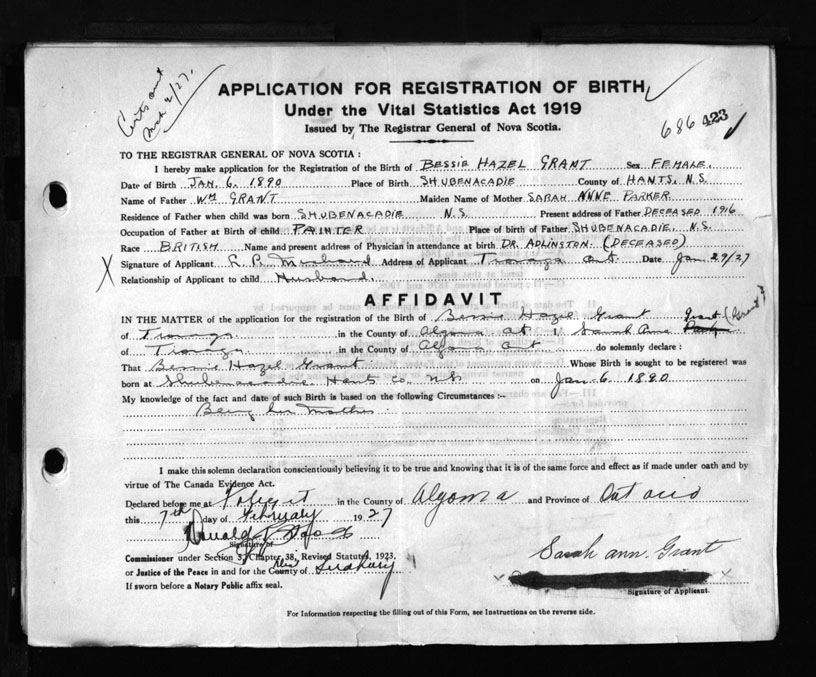 Certs sent
Mch 2/27.
APPLICATION FOR REGISTRATION OF BIRTH
Under the Vital Statistics Act 1919
Issued by The Registrar General of Nova Scotia.
686 423
TO THE REGISTRAR GENERAL OF NOVA SCOTIA :
I hereby make application for the Registration of the Birth of BESSIE HAZEL GRANT Sex FEMALE.
Date of Birth JAN. 6. 1890 Place of Birth SHUBENACADIE County of HANTS, N.S.
Name of Father WM GRANT Maiden Name of Mother SARAH ANNE PARKER
Residence of Father when child was born SHUBENACADIE N.S. Present address of Father DECEASED 1916
Occupation of Father at Birth of child PAINTER Place of birth of Father SHUBENACADIE, N.S.
Race BRITISH Name and present address of Physician in attendance at birth DR. ADLINSTON. (DECEASED)
X Signature of Applicant Address of Applicant Ont. Date Jan 29/27
Relationship of Applicant to child Husband.
AFFIDAVIT
IN THE MATTER of the application for the registration of the Birth of Bessie Hazel Grant
of in the County of Algoma I, Sarah Anne Grant
of in the County of Algoma Ont do solemnly declare :
That Bessie Hazel Grant Whose Birth is sought to be registered was
born at Shubenacadie Hants Co. N.S. on Jan. 6. 1890
My knowledge of the fact and date of such Birth is based on the following Circumstances :-
Being her Mother
I make this solemn declaration conscientiously believing it to be true and knowing that it is of the same force and effect as if made under oath and by
virtue of The Canada Evidence Act.
Declared before me at in the County of Algoma and Province of Ontario
this 7th day of February 1927
Signature of
Commissioner under Section 3, Chapter 38, Revised Statutes, 1923.
or Justice of the Peace in and for the County of Sudbury
If sworn before a Notary Public affix seal.
Sarah ann. Grant
X X
Signature of Applicant.
For Information respecting the filling out of this Form, see Instructions on the reverse side.